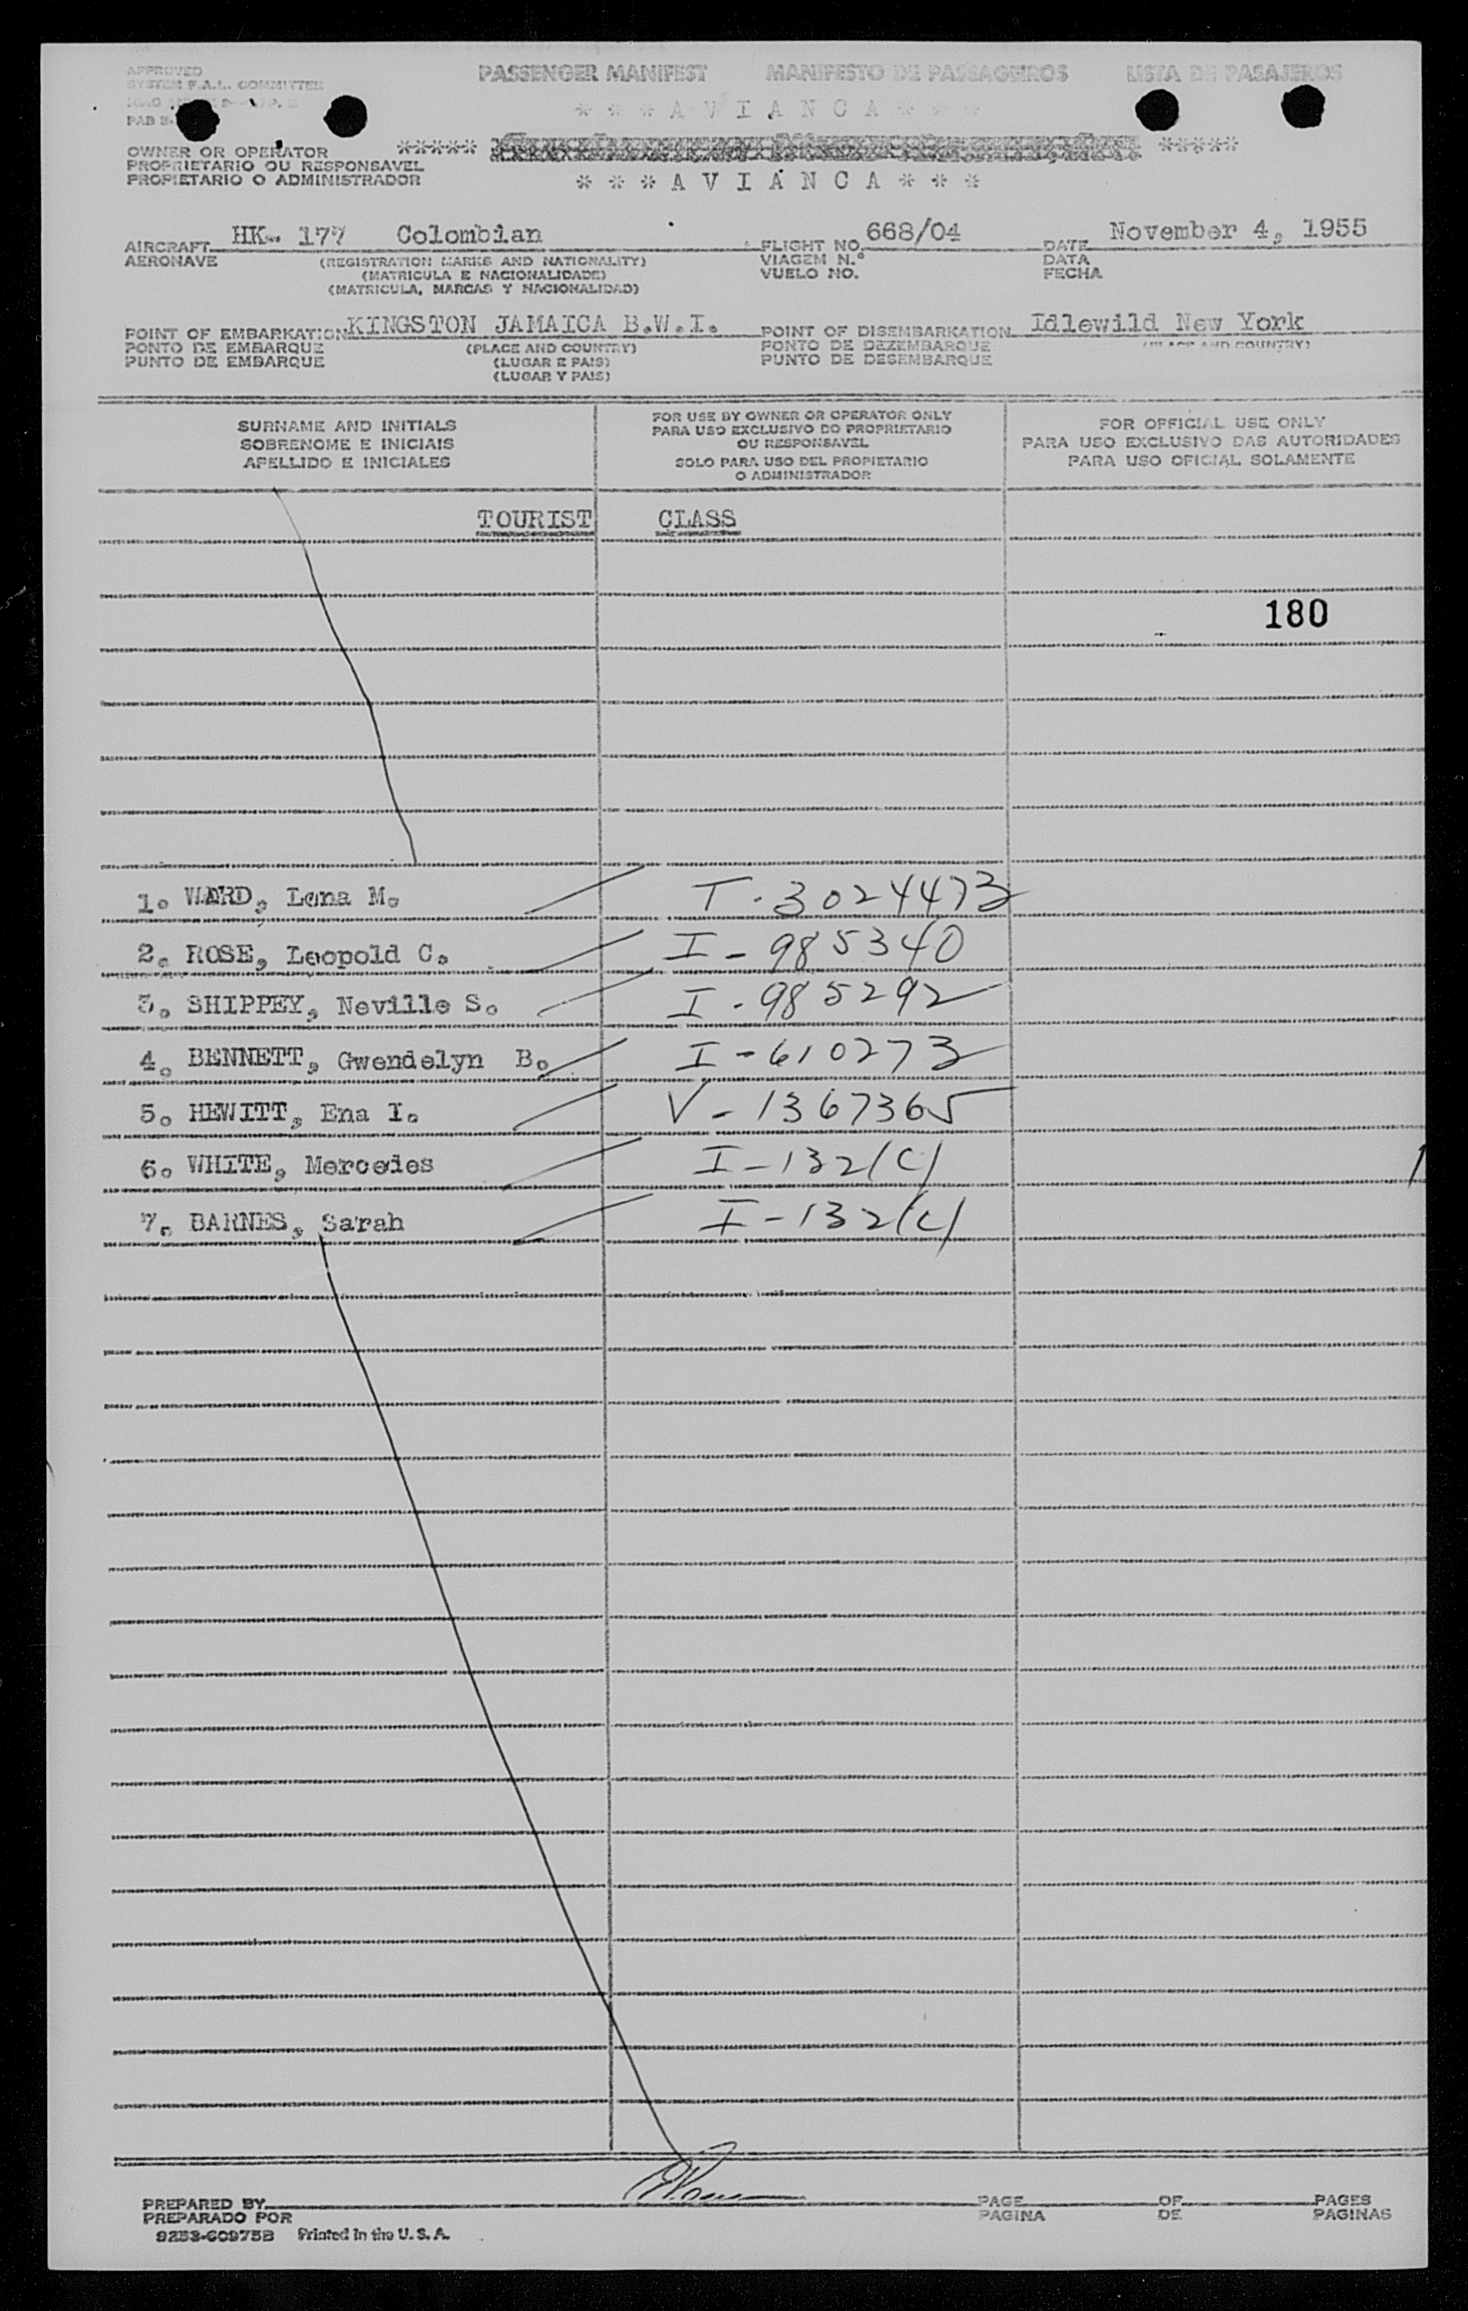 APPROVED
SYSTEM F.A.L. COMMITTEE
PASSENGER MANIFEST MANIFESTO DE PASSAGEIROS LISTA DE PASAJEROS
* * * A V I A N C A * * *
OWNER OR OPERATOR ***** *****
PROPRIETARIO OU RESPONSAVEL
PROPIETARIO O ADMINISTRADOR * * * A V I A N C A * * *
AIRCRAFT HK- 177 Colombian FLIGHT NO. 668/04 DATE November 4, 1955
AERONAVE (REGISTRATION MARKS AND NATIONALITY) VIAGEM N.º DATA
(MATRICULA E NACIONALIDADE) VUELO NO. FECHA
(MATRICULA, MARCAS Y NACIONALIDAD)
POINT OF EMBARKATION KINGSTON JAMAICA B.W.I. POINT OF DISEMBARKATION Idlewild New York
PONTO DE EMBARQUE (PLACE AND COUNTRY) PONTO DE DEZEMBARQUE (PLACE AND COUNTRY)
PUNTO DE EMBARQUE (LUGAR E PAIS) PUNTO DE DESEMBARQUE
(LUGAR Y PAIS)
SURNAME AND INITIALS
SOBRENOME E INICIAIS
APELLIDO E INICIALES
FOR USE BY OWNER OR OPERATOR ONLY
PARA USO EXCLUSIVO DO PROPRIETARIO
OU RESPONSAVEL
SOLO PARA USO DEL PROPIETARIO
O ADMINISTRADOR
FOR OFFICIAL USE ONLY
PARA USO EXCLUSIVO DAS AUTORIDADES
PARA USO OFICIAL SOLAMENTE
TOURIST CLASS
180
1. WARD, Lena M. T-3024473
2. ROSE, Leopold C. I-985340
3. SHIPPEY, Neville S. I-985292
4. BENNETT, Gwendelyn B. I-610273
5. HEWITT, Ena I. V-1367365
6. WHITE, Mercedes I-132(C)
7. BARNES, Sarah I-132(C)
PREPARED BY PAGE OF PAGES
PREPARADO POR PAGINA DE PAGINAS
9253-60975B Printed in the U.S.A.